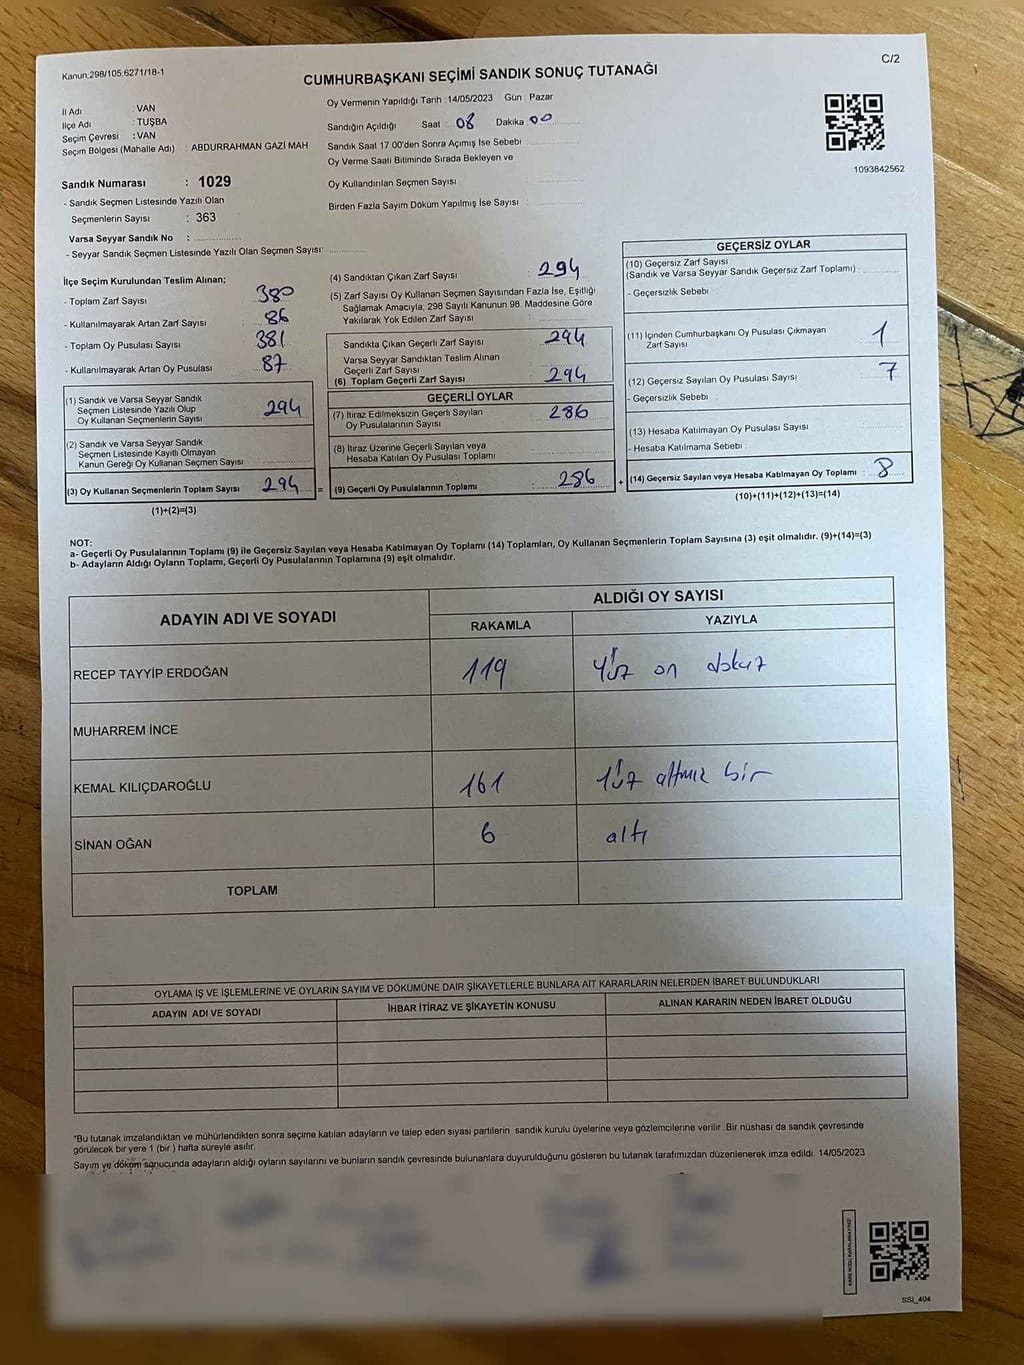 Kanun:298/105;6271/18-1
C/2
CUMHURBAŞKANI SEÇİMİ SANDIK SONUÇ TUTANAĞI
İl Adı : VAN
İlçe Adı : TUŞBA
Seçim Çevresi : VAN
Seçim Bölgesi (Mahalle Adı) : ABDURRAHMAN GAZİ MAH
Sandık Numarası : 1029
- Sandık Seçmen Listesinde Yazılı Olan
Seçmenlerin Sayısı : 363
Varsa Seyyar Sandık No :
- Seyyar Sandık Seçmen Listesinde Yazılı Olan Seçmen Sayısı:
Oy Vermenin Yapıldığı Tarih : 14/05/2023 Gün : Pazar
Sandığın Açıldığı Saat : 08 Dakika : 00
Sandık Saat 17.00'den Sonra Açımış İse Sebebi
Oy Verme Saati Bitiminde Sırada Bekleyen ve
Oy Kullandırılan Seçmen Sayısı :
Birden Fazla Sayım Döküm Yapılmış İse Sayısı :
1093842562
İlçe Seçim Kurulundan Teslim Alınan;
- Toplam Zarf Sayısı : 380
- Kullanılmayarak Artan Zarf Sayısı : 86
- Toplam Oy Pusulası Sayısı : 381
- Kullanılmayarak Artan Oy Pusulası : 87
(1) Sandık ve Varsa Seyyar Sandık
Seçmen Listesinde Yazılı Olup
Oy Kullanan Seçmenlerin Sayısı : 294
(2) Sandık ve Varsa Seyyar Sandık
Seçmen Listesinde Kayıtlı Olmayan
Kanun Gereği Oy Kullanan Seçmen Sayısı :
(3) Oy Kullanan Seçmenlerin Toplam Sayısı : 294 =
(1)+(2)=(3)
(4) Sandıktan Çıkan Zarf Sayısı : 294
(5) Zarf Sayısı Oy Kullanan Seçmen Sayısından Fazla İse, Eşitliği
Sağlamak Amacıyla; 298 Sayılı Kanunun 98. Maddesine Göre
Yakılarak Yok Edilen Zarf Sayısı :
Sandıkta Çıkan Geçerli Zarf Sayısı : 294
Varsa Seyyar Sandıktan Teslim Alınan
Geçerli Zarf Sayısı :
(6) Toplam Geçerli Zarf Sayısı : 294
GEÇERLİ OYLAR
(7) İtiraz Edilmeksizin Geçerli Sayılan
Oy Pusulalarının Sayısı : 286
(8) İtiraz Üzerine Geçerli Sayılan veya
Hesaba Katılan Oy Pusulası Toplamı :
(9) Geçerli Oy Pusulalarının Toplamı : 286 +
GEÇERSİZ OYLAR
(10) Geçersiz Zarf Sayısı
(Sandık ve Varsa Seyyar Sandık Geçersiz Zarf Toplamı) :
- Geçersizlik Sebebi :
(11) İçinden Cumhurbaşkanı Oy Pusulası Çıkmayan
Zarf Sayısı : 1
(12) Geçersiz Sayılan Oy Pusulası Sayısı : 7
- Geçersizlik Sebebi :
(13) Hesaba Katılmayan Oy Pusulası Sayısı :
- Hesaba Katılmama Sebebi :
(14) Geçersiz Sayılan veya Hesaba Katılmayan Oy Toplamı : 8
(10)+(11)+(12)+(13)=(14)
NOT:
a- Geçerli Oy Pusulalarının Toplamı (9) ile Geçersiz Sayılan veya Hesaba Katılmayan Oy Toplamı (14) Toplamları, Oy Kullanan Seçmenlerin Toplam Sayısına (3) eşit olmalıdır. (9)+(14)=(3)
b- Adayların Aldığı Oyların Toplamı, Geçerli Oy Pusulalarının Toplamına (9) eşit olmalıdır.
ADAYIN ADI VE SOYADI
ALDIĞI OY SAYISI
RAKAMLA YAZIYLA
RECEP TAYYİP ERDOĞAN 119 Yüz on dokuz
MUHARREM İNCE
KEMAL KILIÇDAROĞLU 161 Yüz altmız bir
SİNAN OĞAN 6 altı
TOPLAM
OYLAMA İŞ VE İŞLEMLERİNE VE OYLARIN SAYIM VE DÖKÜMÜNE DAİR ŞİKAYETLERLE BUNLARA AİT KARARLARIN NELERDEN İBARET BULUNDUKLARI
ADAYIN ADI VE SOYADI İHBAR İTİRAZ VE ŞİKAYETİN KONUSU ALINAN KARARIN NEDEN İBARET OLDUĞU
*Bu tutanak imzalandıktan ve mühürlendikten sonra seçime katılan adayların ve talep eden siyası partilerin sandık kurulu üyelerine veya gözlemcilerine verilir. Bir nüshası da sandık çevresinde
görülecek bir yere 1 (bir) hafta süreyle asılır.
Sayım ve döküm sonucunda adayların aldığı oyların sayılarını ve bunların sandık çevresinde bulunanlara duyurulduğunu gösteren bu tutanak tarafımızdan düzenlenerek imza edildi. 14/05/2023
KARE KODU KARALAMAYINIZ!
SSI_404